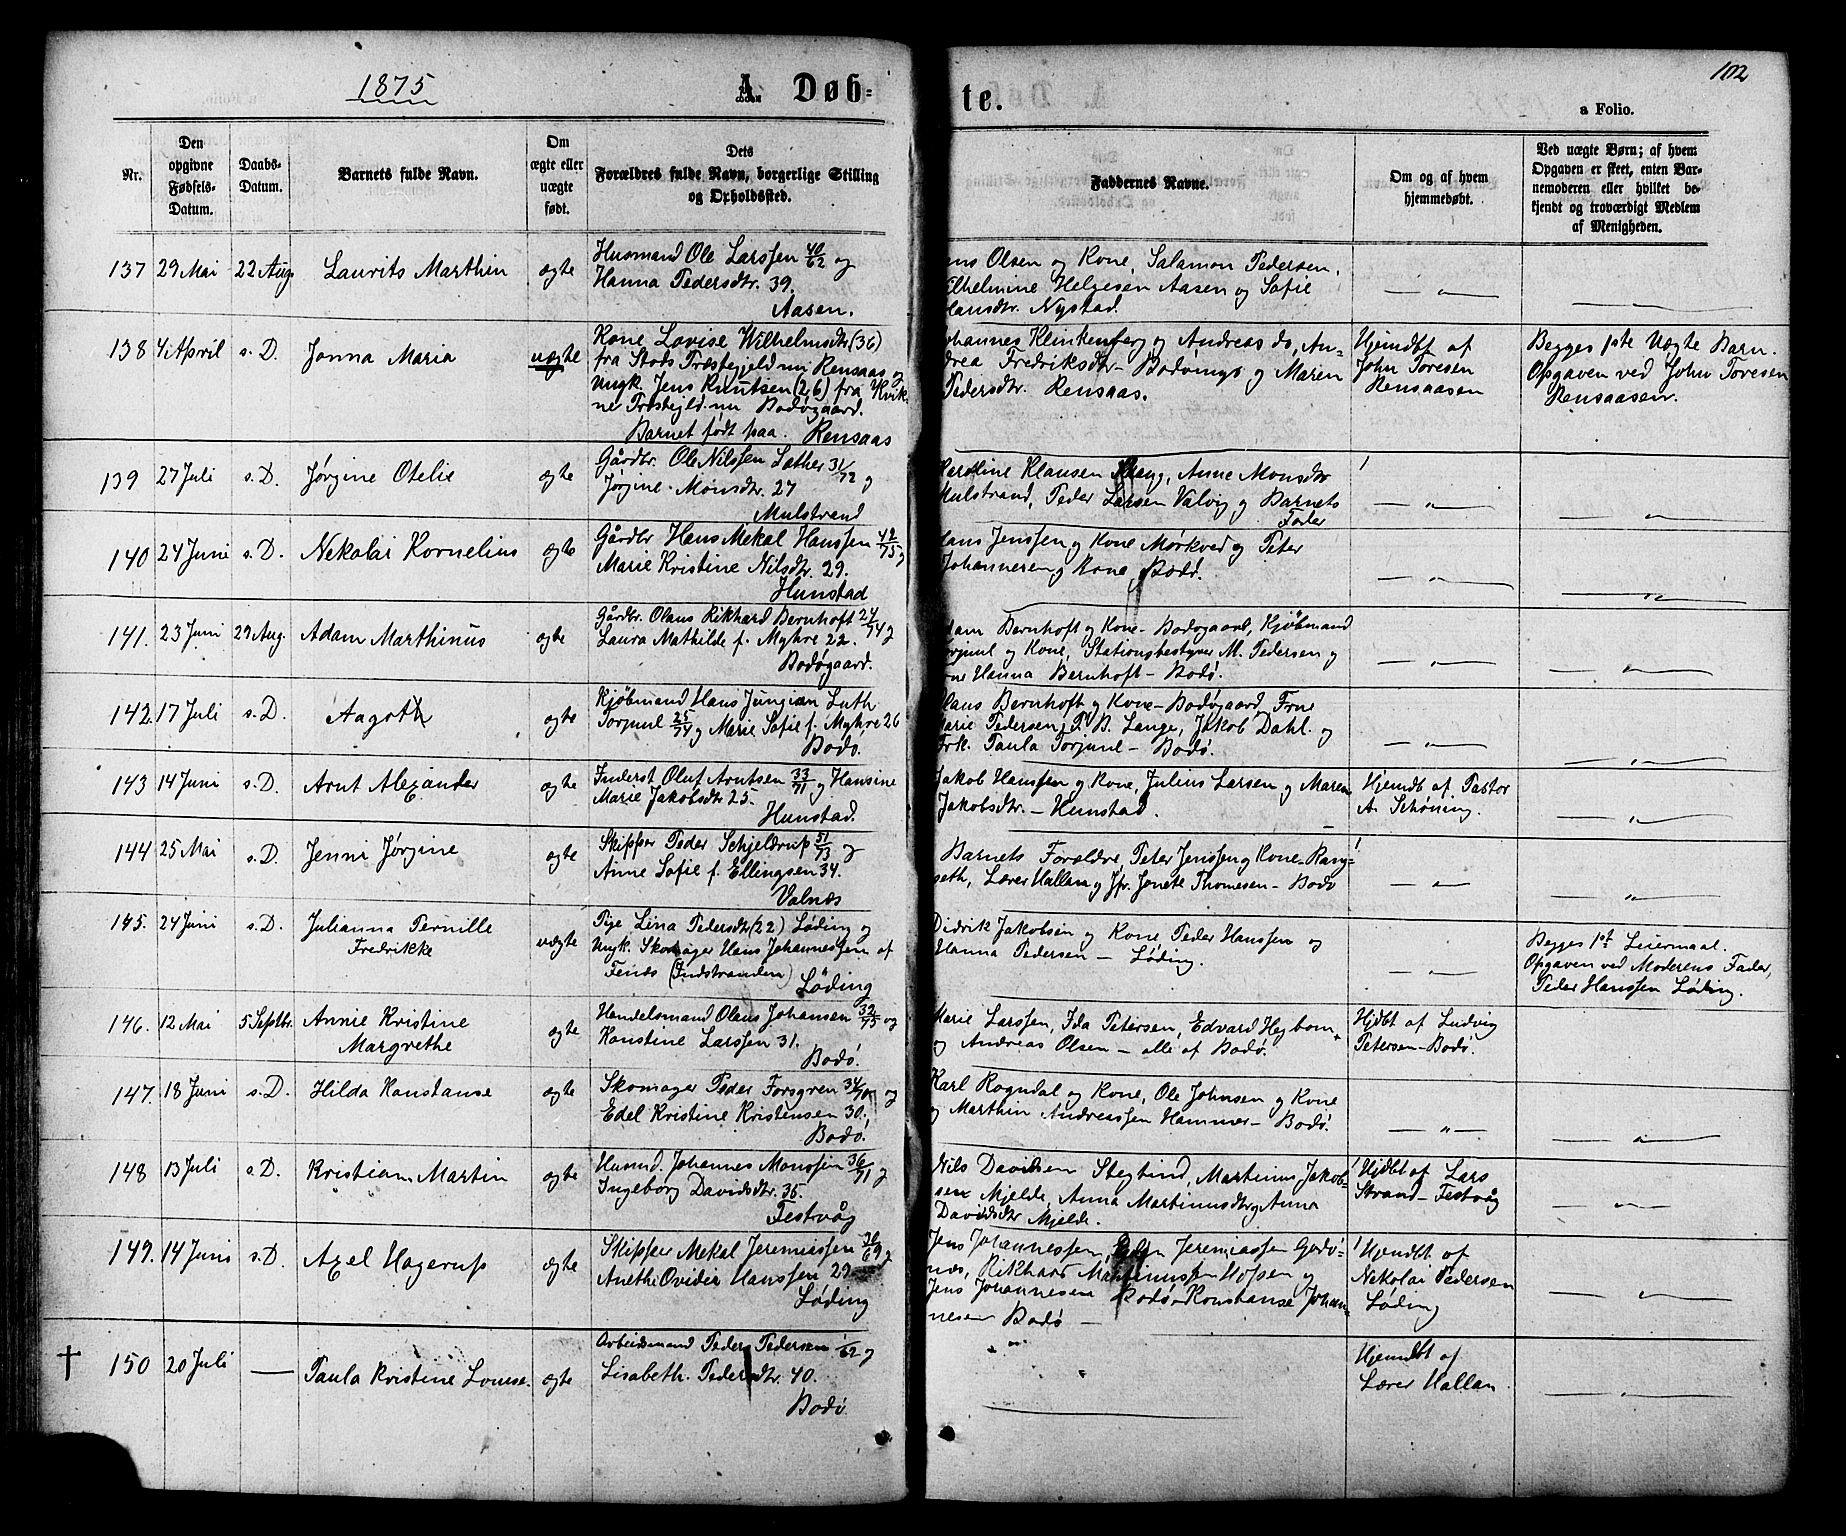 1875
A. Døb-
te.
102
a Folio.
Nr.
Den
opgivne
Fødsels-
Datum.
Daabs-
Datum.
Barnets fulde Navn.
Om
ægte eller
uægte
født.
Dets
Forældres fulde Navn, borgerlige Stilling
og Opholdssted.
Faddernes Navne.
Om og af hvem
hjemmedøbt.
Ved uægte Børn; af hvem
Opgaven er skeet, enten Bar-
nemoderen eller hvilket be-
kjendt og troværdigt Medlem
af Menigheden.
137 29 Mai 22 Aug Laurits Marthin ægte
Husmand Ole Larssen 40/62 og
Hanna Pedersdtr. 39.
Aasen.
Olsen og Kone, Salamon Pedersen,
Helgesen Aasen og Sofie
Hansdtr. Nystad.
138 4 April s. D. Jonna Maria uægte
Kone Lovise Wilhelmsdtr (36)
fra Stods Præstegjeld nu Rensaas og
Ungk. Jens Knutsen (26) fra Kvik-
ne Præstegjeld nu Bodøgaard.
Barnet født paa. Rensaas
Johannes Klinkenberg og Andreas do, An-
drea Fredriksdtr - Bodøings og Maren
Pedersdtr. Rensaas.
Hjemdbt af
John Toresen
Rensaasen
Begges 1ste Uægte Barn.
Opgaven ved John Toresen
Rensaasen.
139 27 Juli s. D. Jørgine Otelie ægte
Gårdbr. Ole Nilssen Lother 31/72 og
Jørgine Monsdtr. 27
Mulstrand
Karoline Klausen Anne Monsdtr
Mulstrand, Peder Larsen Valvig og Barnets
Fader
140 24 Juni s. D. Nekolai Kornelius ægte
Gårdbr Hans Mekal Hanssen 42/75 og
Marie Kristine Nilsdtr. 29.
Hunstad
Hans Jenssen og Kone Mørkved og Peter
Johannesen og Kone Bodø.
141. 23 Juni 29 Aug. Adam Marthinus ægte
Gårdbr. Olaus Rikhard Bernhoft 24/74 og
Laura Mathilde f. Myhre 22.
Bodøgaard.
Adam Bernhoft og Kone - Bodøgaard, Kjøbmand
Torjuul og Kone, Stationsbestyrer M. Pedersen og
Hanna Bernhoft - Bodø.
142. 17 Juli s. D. Aagoth ægte
Kjøbmand Hans Jungian Luth
Torjuul 25/74 og Marie Sofie f. Myhre 26
Bodø.
Olaus Bernhoft og Kone - Bodøgaard, Frue
Marie Pedersen, P. B. Lange, Jakob Dahl. og
Frk. Paula Torjuul - Bodø.
143 14 Juni s. D. Arnt Alexander ægte
Inderst Oluf Arntsen 33/71 og Hansine
Marie Jakobsdtr 25.
Hunstad.
Jakob Hanssen og Kone, Julius Larsen og Maren
Jakobsdtr. - Hunstad.
Hjemdb af Pastor
A. Schøning.
144 25 Mai s. D. Jenni Jørgine ægte
Skipper Peder Schjelderup 51/73 og
Anne Sofie f. Ellingsen 34.
Valnæs
Barnets Forældre, Peter Jenssen og Kone - Rang-
seth, Lærer Hallan og Jfr. Jonete Thomesen - Bodø
145. 24 Juni s. D. Julianna Pernille
Fredrikke
uægte
Pige Lina Pedersdtr (22) Løding og
Ungk. Skomager Hans Johannessen af
Fenes (Indstranden)
Løding
Didrik Jakobsen og Kone Peder Hanssen og
Hanna Pedersen - Løding.
Begges 1st Leiermaal.
Opgaven ved Moderens Fader,
Peder Hanssen Løding.
146. 12 Mai 5 Septbr. Annie Kristine
Margrethe
ægte
Handelsmand Olaus Johansen 32/75 og
Konstine Larssen 31.
Bodø.
Marie Larssen, Ida Petersen, Edvard Hegbom
og Andreas Olsen - alle af Bodø.
Hjdbt af Ludvig
Petersen - Bodø.
147. 18 Juni s. D. Hilda Konstanse ægte
Skomager Peder Forsgren 34/70 og
Edel Kristine Kristensen 30.
Bodø.
Karl Rogndal og Kone, Ole Johnsen og Kone
og Marthin Andreassen Hammer - Bodø.
148 13 Juli s. D. Kristian Martin ægte
Husmd. Johannes Monssen 36/71 og
Ingeborg Davidsdtr. 35.
Festvåg
Nils Davidsen Stegtind, Martinus Jakob-
sen Mjelde, Anna Martinusdtr og Anna
Davidsdtr Mjelde.
Hjdbt af Lars
Strand - Festvåg
149. 14 Juni s. D. Axel Hagerup ægte
Skipper Mekal Jeremiassen 30/69 og
Anethe Ovidie Hanssen 29
Løding
Jens Johannessen, Jeremiassen Godø-
næs, Rikhard Martinussen Hopen og
Jens Johannesen Bodø. Konstanse Johan-
nesen Bodø -
Hjemdbt af
Nekolai Pedersen
Løding
† 150 20 Juli — Paula Kristine Louise. ægte
Arbeidsmand Peder Pedersen /62 og
Lisabeth. Pedersdtr. 40.
Bodø
Hjemdbt af
Lærer Hallan